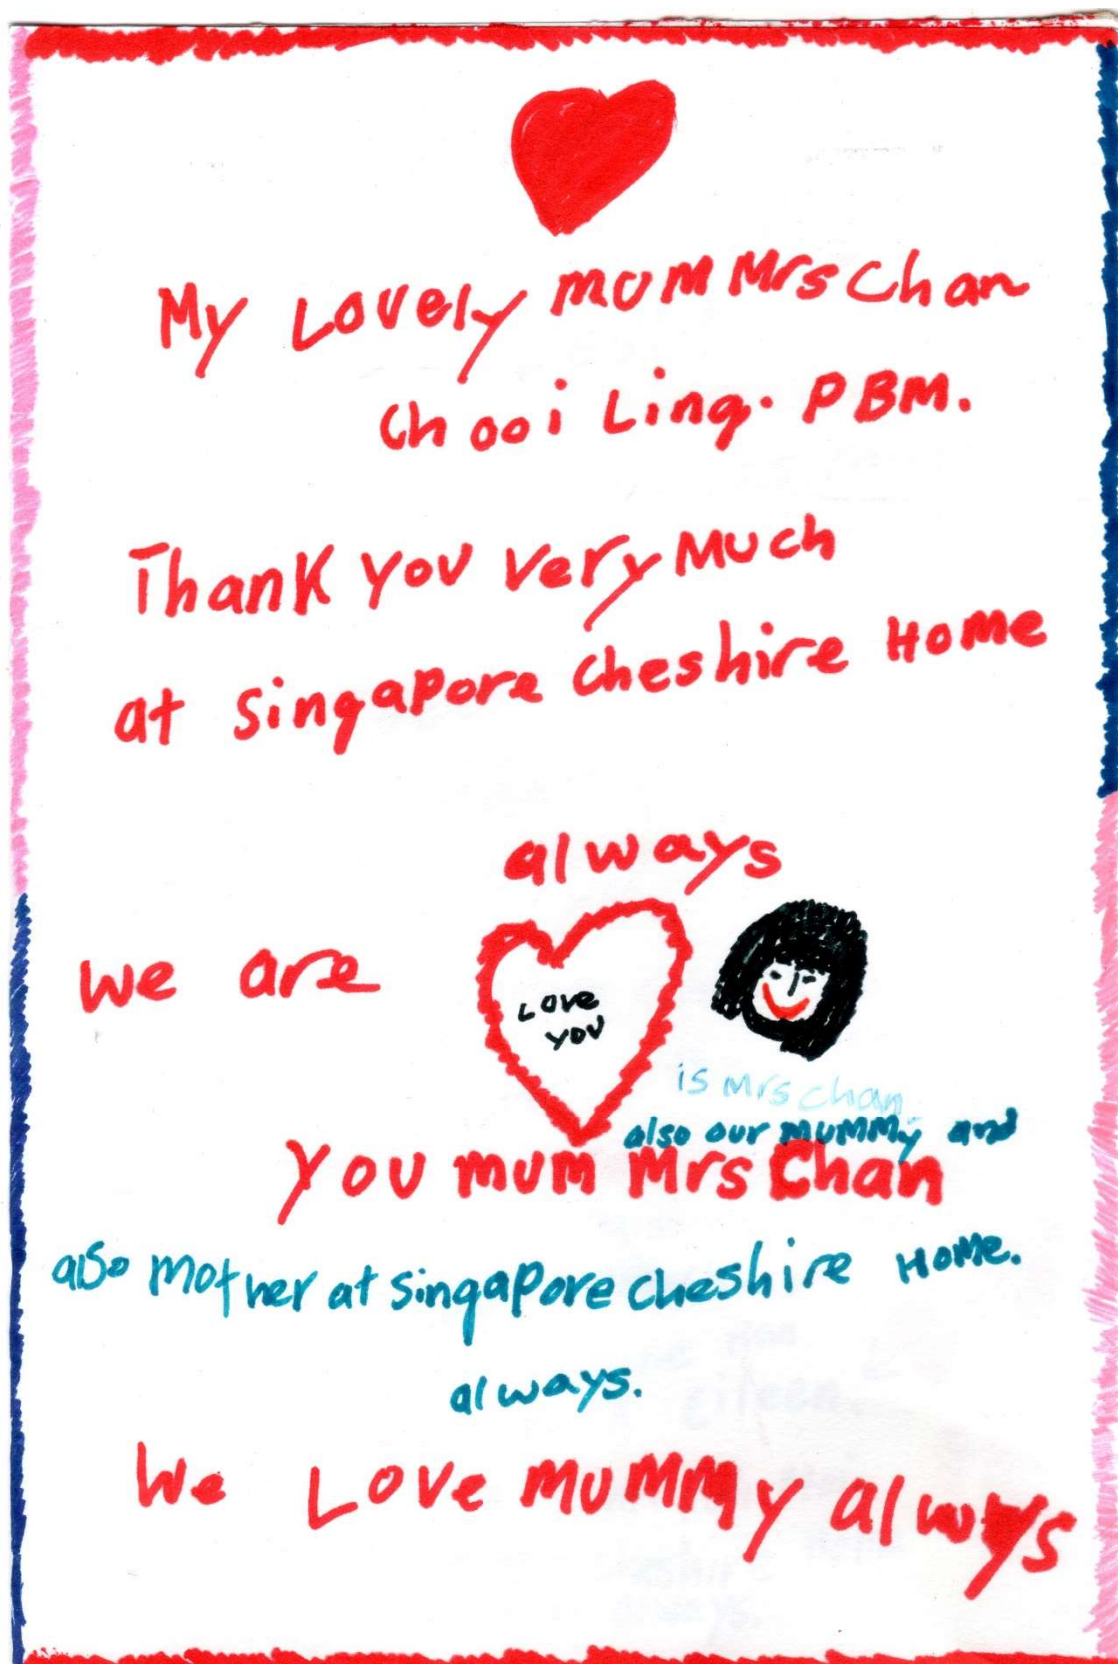 My Lovely mum Mrs Chan
Chooi Ling. PBM.
Thank you very much
at Singapore Cheshire Home
always
we are
Love
you
is Mrs Chan
also our mummy and
you mum Mrs Chan
also mother at Singapore Cheshire Home.
always.
We Love mummy always
eileen.